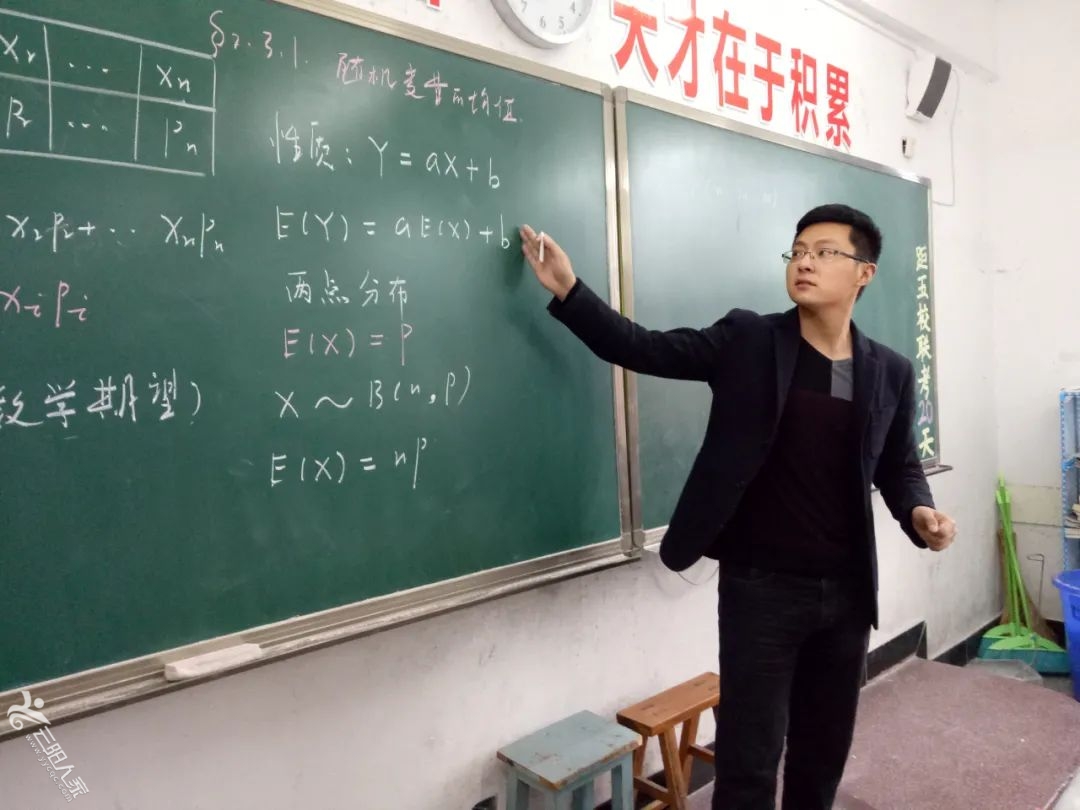 天才在于积累
7 6 5 4
X₂ … Xn
P₂ … Pn
X₂P₂+… XnPn
XᵢPᵢ
数学期望)
§2.3.1. 随机变量的均值.
性质: Y = aX + b
E(Y) = aE(X) + b
两点分布
E(X) = P
X ~ B(n, P)
E(X) = nP
距五校联考20天
云阳人家
www.yycqc.com